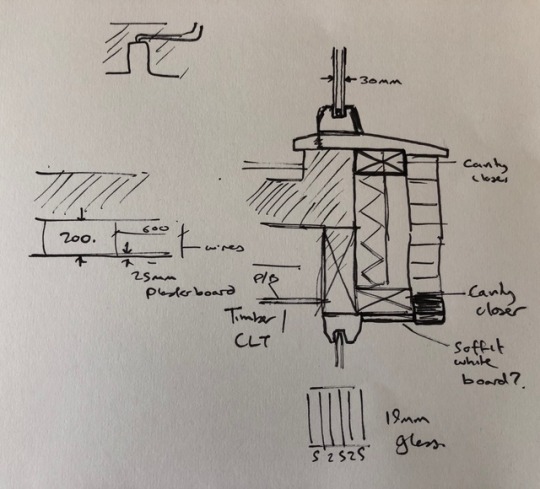 30mm
Cavity
closer
200.
600
wires
25mm
Plasterboard
P/B
Timber/
CLT
Cavity
closer
Soffit
white
board?
19mm
glass
5 2 5 2 5